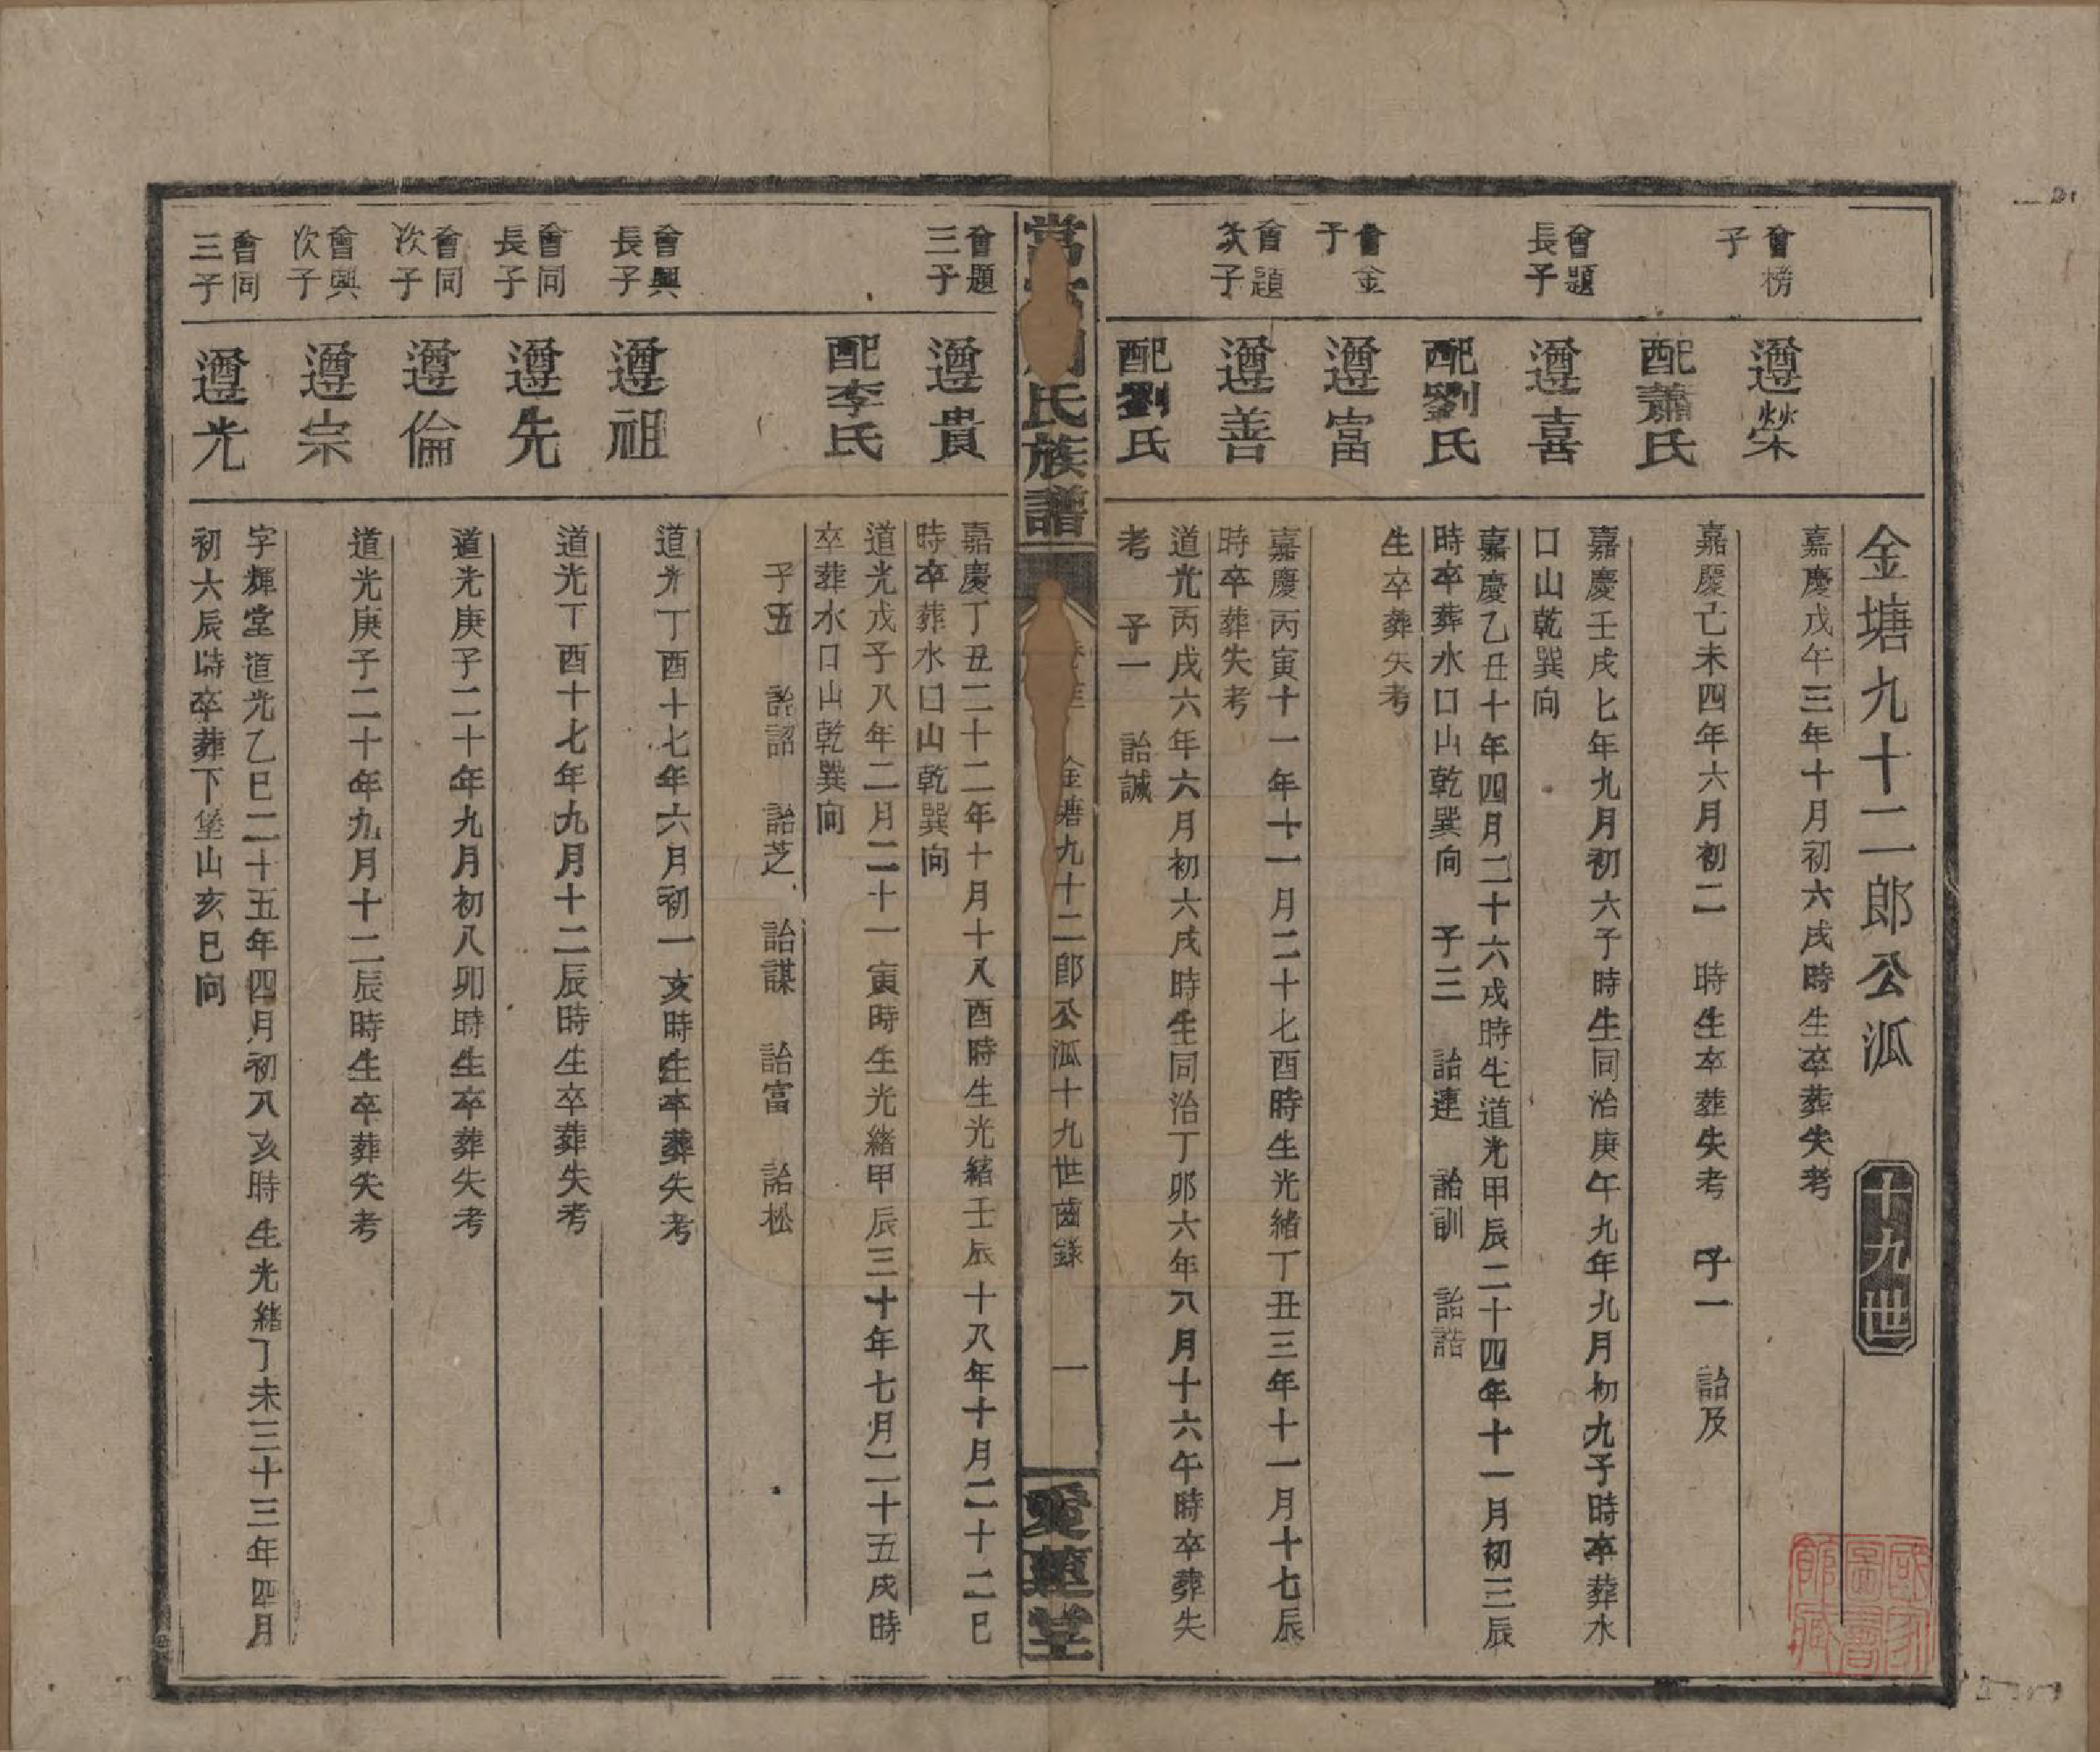 金塘九十二郎公派 十九世
會榜子
遵榮
嘉慶戊午三年十月初六戌時生卒葬失考
配蕭氏
嘉慶己未四年六月初二 時生卒葬失考 子一 詒及
會題長子
遵喜
嘉慶壬戌七年九月初六子時生同治庚午九年九月初九子時卒葬水
口山乾巽向
配劉氏
嘉慶乙丑十年四月二十六戌時生道光甲辰二十四年十一月初三辰
時卒葬水口山乾巽向 子三 詒連 詒訓 詒誥
會金子
遵富
生卒葬失考
會題次子
遵善
嘉慶丙寅十一年十一月二十七酉時生光緒丁丑三年十一月十七辰
時卒葬失考
配劉氏
道光丙戌六年六月初六戌時生同治丁卯六年八月十六午時卒葬失
考 子一 詒誠
氏族譜
金塘九十二郎公派十九世齒錄 一
愛蓮堂
會題三子
遵貴
嘉慶丁丑二十二年十月十八酉時生光緒壬辰十八年十月二十二巳
時卒葬水口山乾巽向
配李氏
道光戊子八年二月二十一寅時生光緒甲辰三十年七月二十五戌時
卒葬水口山乾巽向
子五 詒詔 詒芝 詒謀 詒富 詒松
會興長子
遵祖
道光丁酉十七年六月初一亥時生卒葬失考
會同長子
遵先
道光丁酉十七年九月十二辰時生卒葬失考
會同次子
遵倫
道光庚子二十年九月初八卯時生卒葬失考
會興次子
遵宗
道光庚子二十年九月十二辰時生卒葬失考
會同三子
遵光
字輝堂道光乙巳二十五年四月初八亥時生光緒丁未三十三年四月
初六辰時卒葬下堡山亥巳向
國家圖書館藏